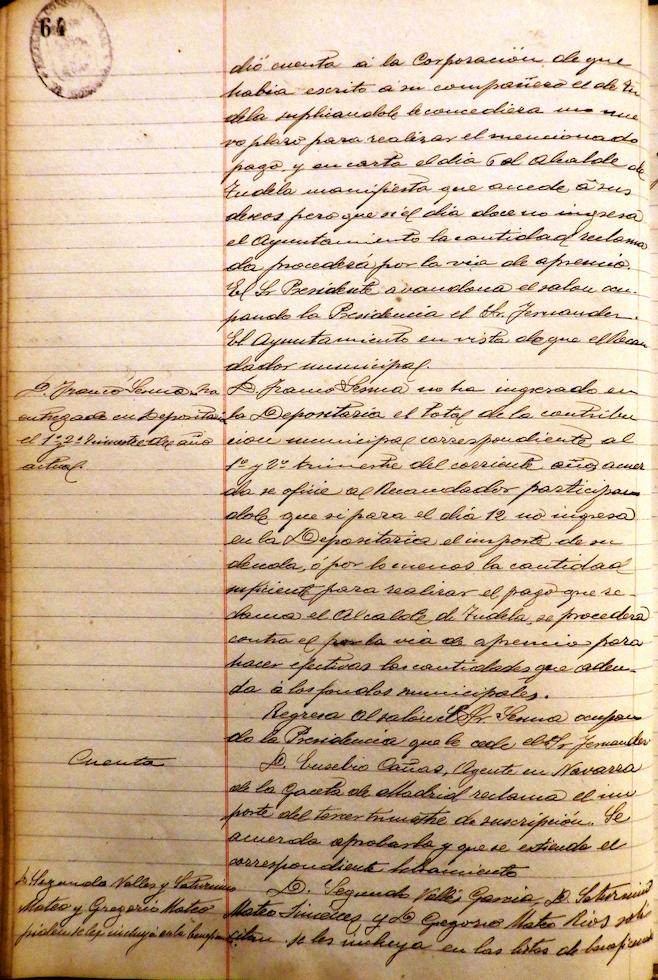 64
dió cuenta á la Corporación de que
habia escrito á su compañero el de Tu
dela suplicandole le concediera un nue
vo plazo para realizar el mencionado
pago y en carta el dia 6 el Alcalde de
Tudela manifiesta que accede á sus
deseos pero que si el dia doce no ingresa
el Ayuntamiento la cantidad reclama
da procederá por la via de apremio.
El Sr Presidente avandona el salon ocu
pando la Presidencia el Sr. Fernandez.
El Ayuntamiento en vista de que el Recau
dador municipal
D. Franco Senna ha
entregado en Depositaria
el 1º y 2º trimestre del año
actual
D. Franco Senna no ha ingresado en
la Depositaria el total de la contribu
cion municipal correspondiente al
1º y 2º trimestre del corriente año, acuer
da se oficie al Recaudador participan
dole que si para el dia 12 no ingresa
en la Depositaria el importe de su
deuda, ó por lo menos la cantidad
suficiente para realizar el pago que re
clama el Alcalde de Tudela, se procederá
contra el por la via de apremio para
hacer efectivas las cantidades que adeu
da á los fondos municipales.
Regresa al salón el Sr. Senna ocupan
do la Presidencia que le cede el Sr. Fernandez
Cuenta
D. Eusebio Cañas, Agente en Navarra
de la Gaceta de Madrid reclama el im
porte del tercer trimestre de suscripción. Se
acuerda aprobarla y que se estienda el
correspondiente libramiento
D. Segundo Valles y Saturnino
Mateo y Gregorio Mateo
piden se les incluya en la
D. Segundo Vallés Garcia, D. Saturnino
Mateo Jiménez y D Gregorio Mateo Rios soli
citan se les incluya en las listas de